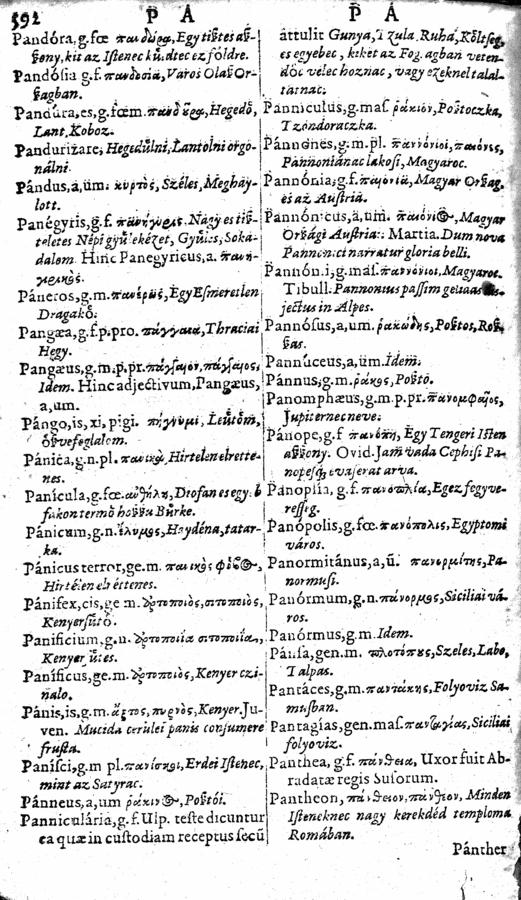 592 P A
P A
Pandóra, g. fœ πανδώρα, Egy tiſtes aſ-
ſony, kit az Iſtenec kúldtec ez földre.
Pandóſia g. f. πανδοσία, Varos Olaſ Or-
ſagban.
Pandúra, es, g. fœm. πανδοῦρα, Hegedö,
Lant, Koboz.
Pandurizare, Hegedűlni, Lantolni orgo-
nálni.
Pándus, a, üm. κυρτὸς, Széles, Meghay-
lott.
Panégyris, g. f. πανήγυρις. Nagy es tiſ-
teletes Népi gyűlekézet, Gyűlés, Soka-
dalom. Hinc Panegyricus, a. πανη-
γυρικὸς.
Páneros, g. m. πανέρως, Egy Eſmeretlen
Dragakő.
Pangæa, g. f. p. pro. πάγγαια, Thraciai
Hegy.
Pangæus, g. m. p. pr. παγγαῖον, παγγαῖος,
Idem. Hinc adjectivum, Pangæus,
a, um.
Pángo, is, xi, pigi. πηγνυμι, Leűtöm,
öſvefoglalom.
Pánica, g. n. pl. πανικὰ, Hirtelen elrette-
nes.
Panícula, g. fœ. ἀνθήλη, Diofan es egyéb
fakon termö hoſſu Burke.
Pánicum, g. n. ἔλυμος, Haydéna, tatar-
ka.
Pánicus terror, ge. m. πανικὸς φόβος,
Hirtelen elrettenes.
Pánifex, cis, ge m. ἀρτοποιὸς, σιτοποιὸς,
Kenyerſűtö.
Panificium, g. n. ἀρτοποιΐα σιτοποιΐα,
Kenyer űtes.
Paníficus, ge. m. ἀρτοποιὸς, Kenyer czi-
nalo.
Pánis, is, g. m. ἄρτος, πυρνὸς, Kenyer. Ju-
ven. Mucida cerulei panis conſumere
fruſta.
Paníſci, g. m pl. πανίσκοι, Erdei Iſtenec,
mint az Satyrac.
Pánneus, a, um ῥάκινος, Poſtói.
Pannicularía, g. f. Ulp. teſte dicuntur
ea quæ in cuſtodiam receptus ſecū
attulit Gunya, Ruha, Költſeg,
es egyebec, kiket az Fogſagban veten-
döc velec hoznac, vagy ezeknel talal-
tatnac.
Panniculus, g. maſ. ῥάκιον, Poſtoczka,
Tzondoraczka.
Pannónes, g. m. pl. πανόνιοι, παιόνες,
Pannoniánac lakoſi, Magyaroc.
Pannónia, g. f. παιονία, Magyar Orſag,
és az Auſtriá.
Pannónicus, a, um. παιόνιος, Magyar
Orſági Auſtriai: Martia. Dum nova
Pannonici narratur gloria belli.
Pannónii, g. maſ. πανόνιοι, Magyaroc.
Tibull. Pannonius paſſim gelidas
jectus in Alpes.
Pannóſus, a, um. ῥακώδης, Poſtos, Roſ-
ſas.
Pannúceus, a, üm. Idem.
Pánnus, g. m. ῥάκος, Poſtó.
Panomphæus, g. m. p. pr. πανομφαῖος,
Jupiter neve.
Pánope, g. f πανόπη, Egy Tengeri Iſten
aſſony. Ovid. Jam vada Cephiſi Pa-
nopeſq; evaſerat arva.
Panoplía, g. f. πανοπλία, Egez fegyve-
reſſeg.
Panópolis, g. fœ. πανόπολις, Egyptomi
város.
Panormitánus, a, ū. πανορμίτης, Pa-
normuſi.
Panórmum, g. n. πάνορμος, Siciliai vá-
ros.
Panórmus, g. m. Idem.
Pánſa, gen. m. πλατύπυς, Szeles, Labo,
Talpas.
Pantáces, g. m. παντάκης, Folyoviz Sa-
muſban.
Pantagías, gen. maſ. πανταγίας, Siciliai
folyoviz.
Panthea, g. f. πάνθεια, Uxor fuit Ab-
radatæ regis Suſorum.
Pantheon, πάνθειον, πάνθεον, Minden
Iſteneknec nagy kerekdéd temploma
Romában.
Pánther